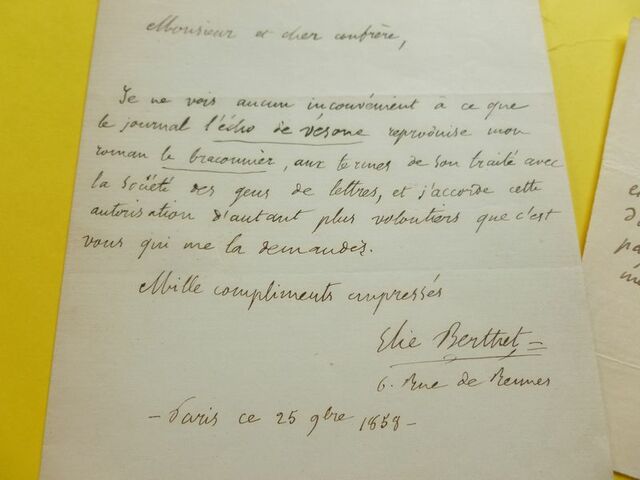 Monsieur et cher confrère,
Je ne vois aucun inconvénient à ce que
le journal l'écho de vésone reproduise mon
roman le braconnier, aux termes de son traité avec
la Société des gens de lettres, et j'accorde cette
autorisation d'autant plus volontiers que c'est
vous qui me la demandés.
Mille compliments empressés
Elie Berthet
6. Rue de Rennes
- Paris ce 25 9bre 1858 -